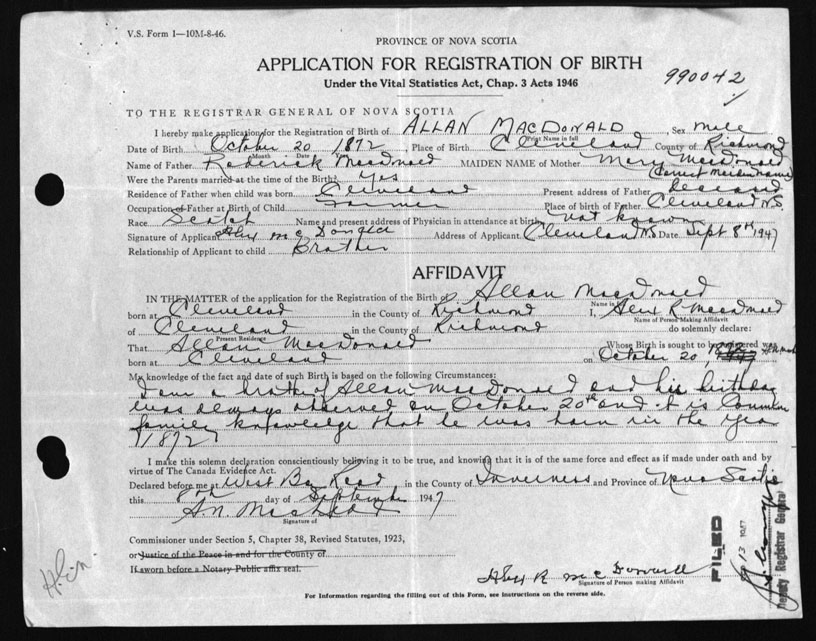 V.S. Form 1—10M-8-46.
PROVINCE OF NOVA SCOTIA
APPLICATION FOR REGISTRATION OF BIRTH
Under the Vital Statistics Act, Chap. 3 Acts 1946
990042
TO THE REGISTRAR GENERAL OF NOVA SCOTIA
I hereby make application for the Registration of Birth of ALLAN MACDONALD, Sex Male
Print Name in full
Date of Birth October 20 1872, Place of Birth Cleveland County of Richmond
Month Date Year
Name of Father Roderick Macdonald MAIDEN NAME of Mother Mary Macdonald
(Correct maiden name)
Were the Parents married at the time of the Birth? Yes
Residence of Father when child was born Cleveland Present address of Father deceased
Occupation of Father at Birth of Child Farmer Place of birth of Father Cleveland N.S.
Race Scotch Name and present address of Physician in attendance at birth not known
Signature of Applicant Alex McDonald Address of Applicant Cleveland N.S Date Sept 8th 1947
Relationship of Applicant to child Brother
AFFIDAVIT
IN THE MATTER of the application for the Registration of the Birth of Allan Macdonald
Name in
born at Cleveland in the County of Richmond I, Alex R Macdonald
Name of Person Making Affidavit
of Cleveland in the County of Richmond do solemnly declare:
Present Residence
That Allan Macdonald Whose Birth is sought to be registered was
born at Cleveland on October 20 1872
My knowledge of the fact and date of such Birth is based on the following Circumstances:
I am a brother of Allan Macdonald and his birthday
was always observed on October 20th and it is Common
family knowledge that he was born in the year
1872
I make this solemn declaration conscientiously believing it to be true, and knowing that it is of the same force and effect as if made under oath and by
virtue of The Canada Evidence Act.
Declared before me at West Bay Road in the County of Inverness and Province of Nova Scotia
this 8th day of September 1947
A.N. MacLeod
Signature of
Commissioner under Section 5, Chapter 38, Revised Statutes, 1923,
or Justice of the Peace in and for the County of
If sworn before a Notary Public affix seal.
FILED
Deputy Registrar General
Alex R McDonald
Signature of Person making Affidavit
For Information regarding the filling out of this Form, see instructions on the reverse side.